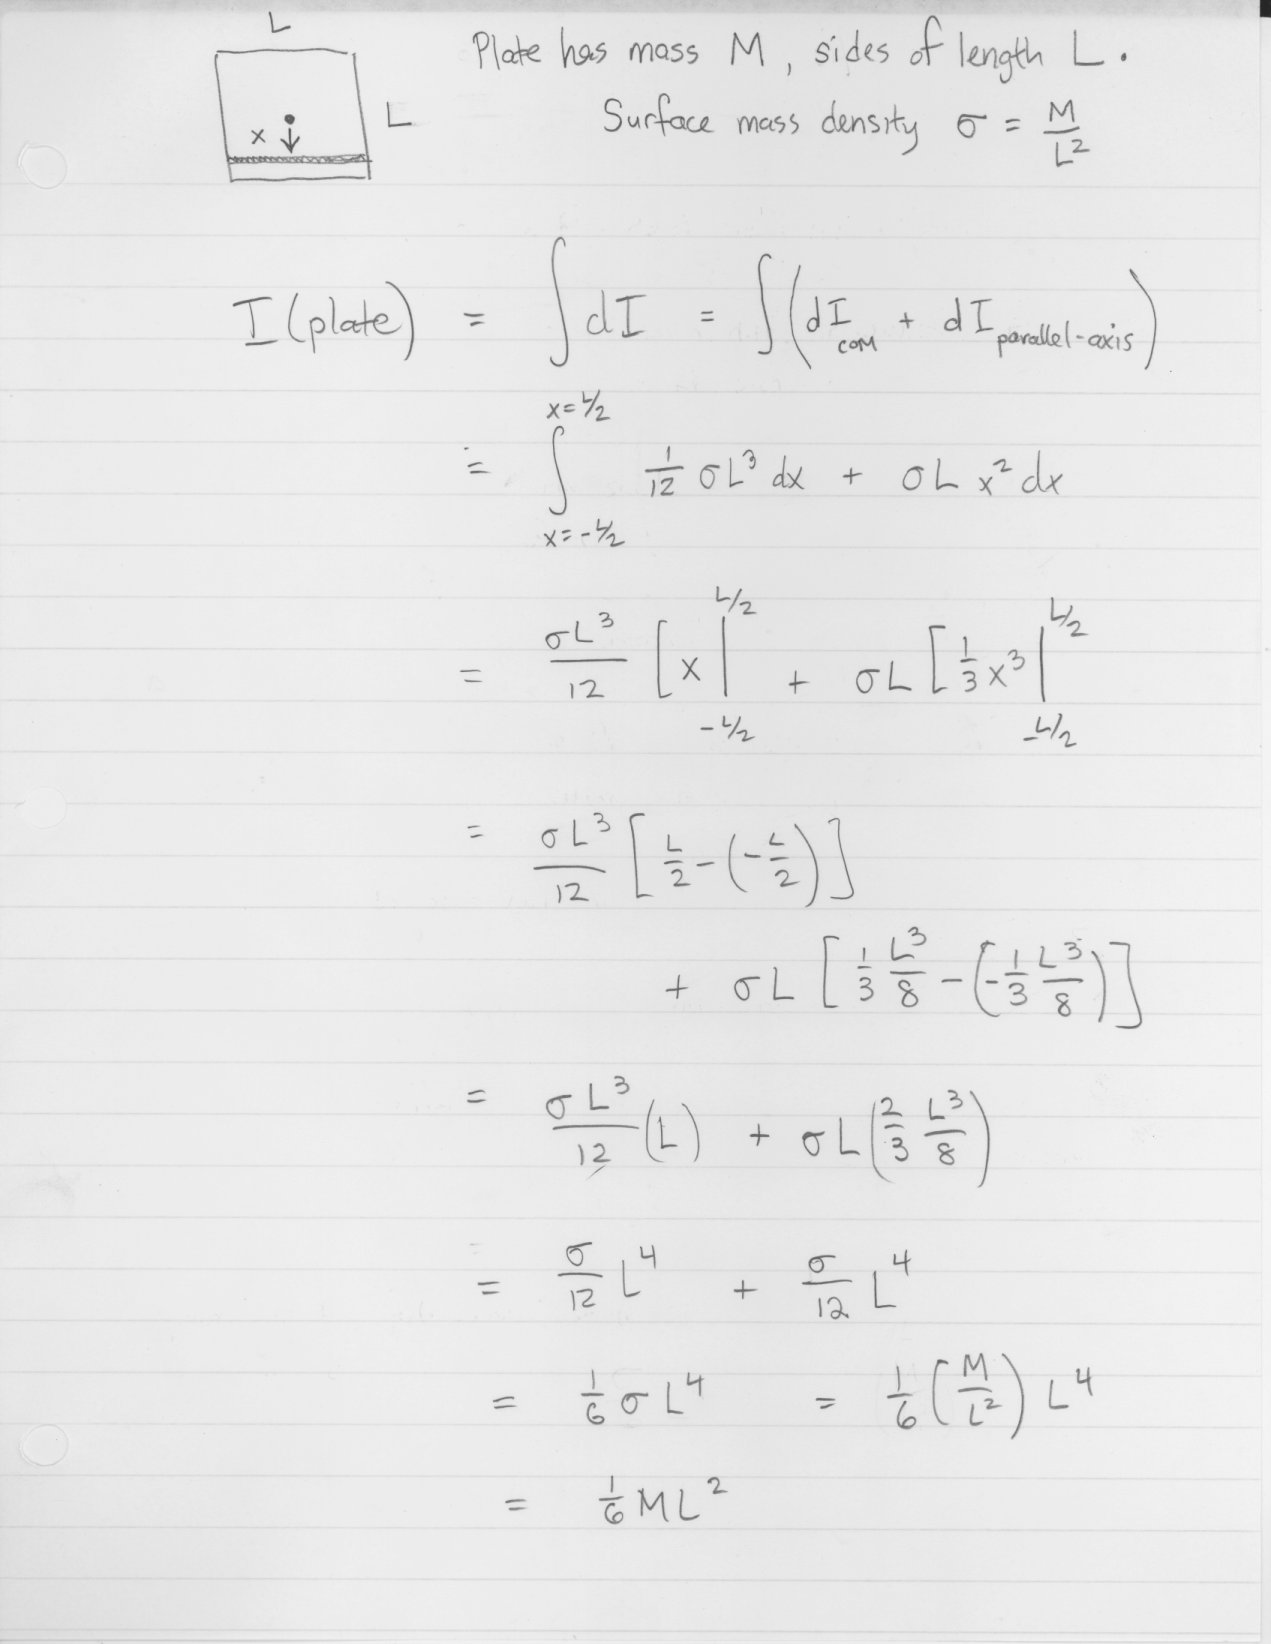 L
Plate has mass M, sides of length L.
L
x
Surface mass density σ = M/L²
I (plate) = ∫ dI = ∫ (dI_COM + dI_parallel-axis)
= ∫_{x=-L/2}^{x=L/2} 1/12 σL³ dx + σL x² dx
= σL³/12 [x|_{-L/2}^{L/2} + σL [1/3 x³|_{-L/2}^{L/2}
= σL³/12 [L/2 - (-L/2)]
+ σL [1/3 L³/8 - (-1/3 L³/8)]
= σL³/12 (L) + σL (2/3 L³/8)
= σ/12 L⁴ + σ/12 L⁴
= 1/6 σ L⁴ = 1/6 (M/L²) L⁴
= 1/6 ML²